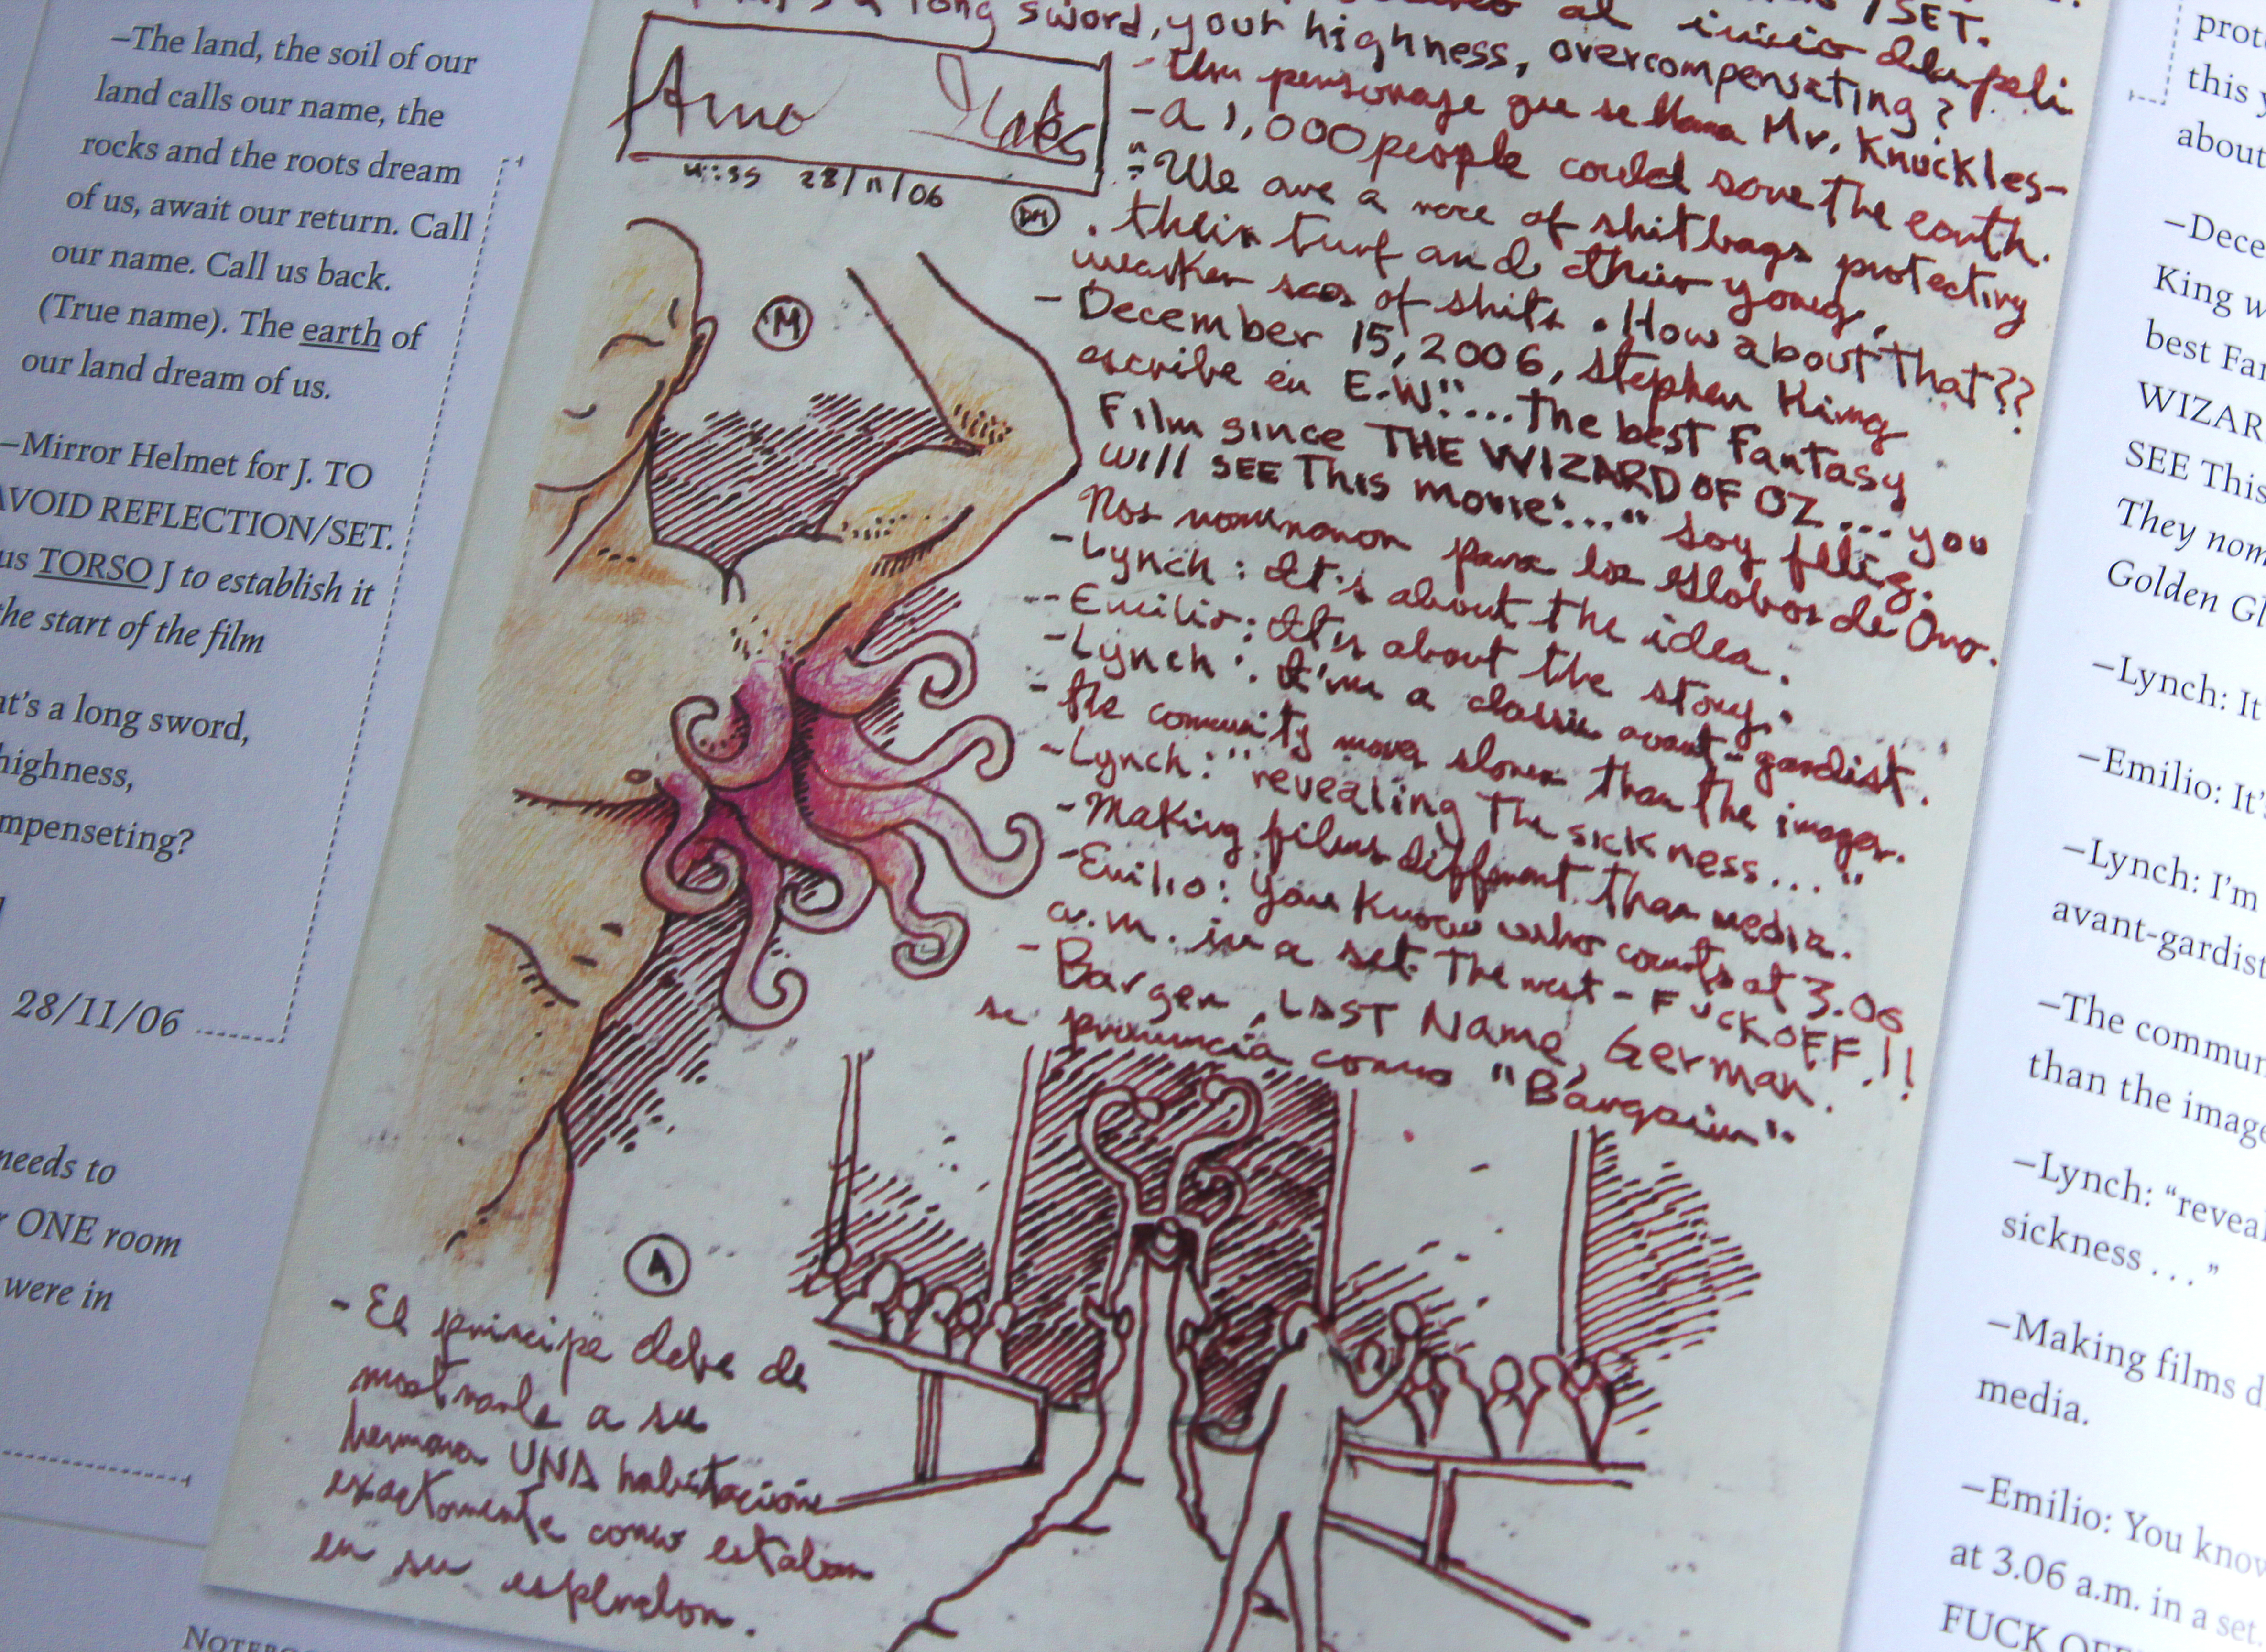 –The land, the soil of our
land calls our name, the
rocks and the roots dream
of us, await our return. Call
our name. Call us back.
(True name). The earth of
our land dream of us.
–Mirror Helmet for J. TO
AVOID REFLECTION/SET.
us TORSO J to establish it
the start of the film
at's a long sword,
highness,
mpenseting?
28/11/06
needs to
r ONE room
were in
al inicio de la peli
/SET.
a long sword, your highness, overcompensating?
- Un personaje que se llama Mr. Knuckles-
- a 1,000 people could save the earth.
- "We are a race of shitbags protecting
their turf and their young,
weaker sacs of shits. How about that??
- December 15, 2006, Stephen King
escribe en E.W: "...The best Fantasy
Film since THE WIZARD OF OZ... you
will SEE This movie..." soy feliz.
Nos nominaron para los Globos de Oro.
- Lynch: It's about the idea.
- Emilio: It's about the story.
- Lynch: I'm a classic avant-gardist.
- The comunity moves slower than the images.
- Lynch: "revealing The sickness..."
- Making films different than media.
- Emilio: You know who counts at 3.06
a.m. in a set. The rest - FUCK OFF!!
- Bargen, LAST Name, German.
se pronuncia como "Bargain".
28/11/06
DM
M
A
- El principe debe de
mostrarle a su
hermana UNA habitacion
exactamente como estaban
en su esplendor.
NOTEBO
prote
this y
about
–Dece
King w
best Fan
WIZAR
SEE This
They nom
Golden Gl
–Lynch: It
–Emilio: It's
–Lynch: I'm
avant-gardist
–The commun
than the image
–Lynch: "reveal
sickness . . ."
–Making films d
media.
–Emilio: You know
at 3.06 a.m. in a set.
FUCK OFF